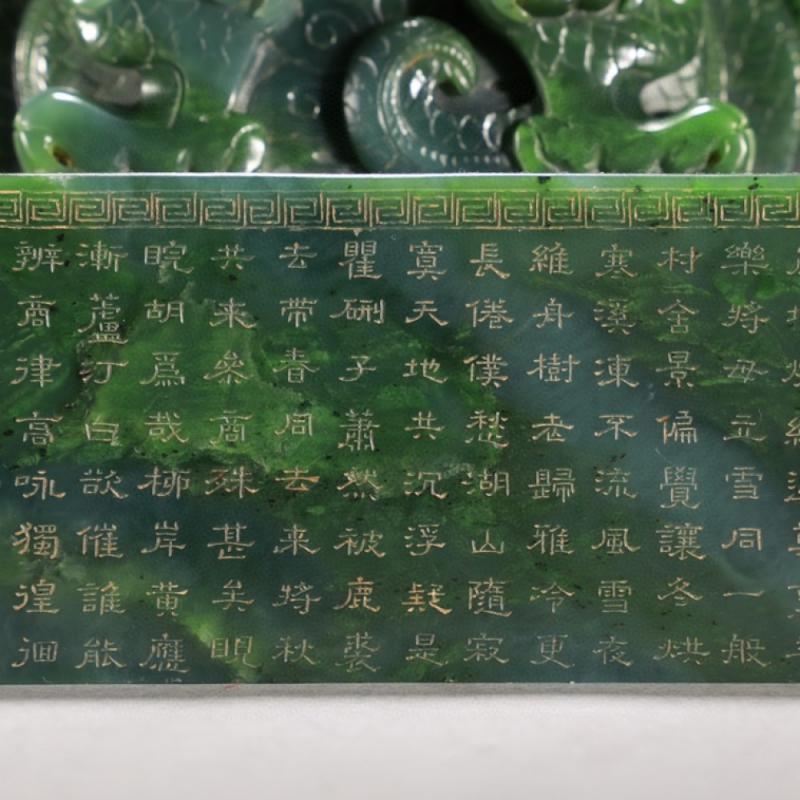 樂將毋立雪同一般
村舍景偏覺讓冬烘
寒溪凍不流風雪夜
維舟樹老歸雅冷更
長倦僕愁湖山隨寂
寞天地共沉浮疑是
瞿硎子蕭然被鹿裘
去帶春同去来將秋
共来叅商殊甚矣睍
睆胡爲哉栁岸黄應
漸蘆汀白欲催誰能
辨商律高咏獨徨徊